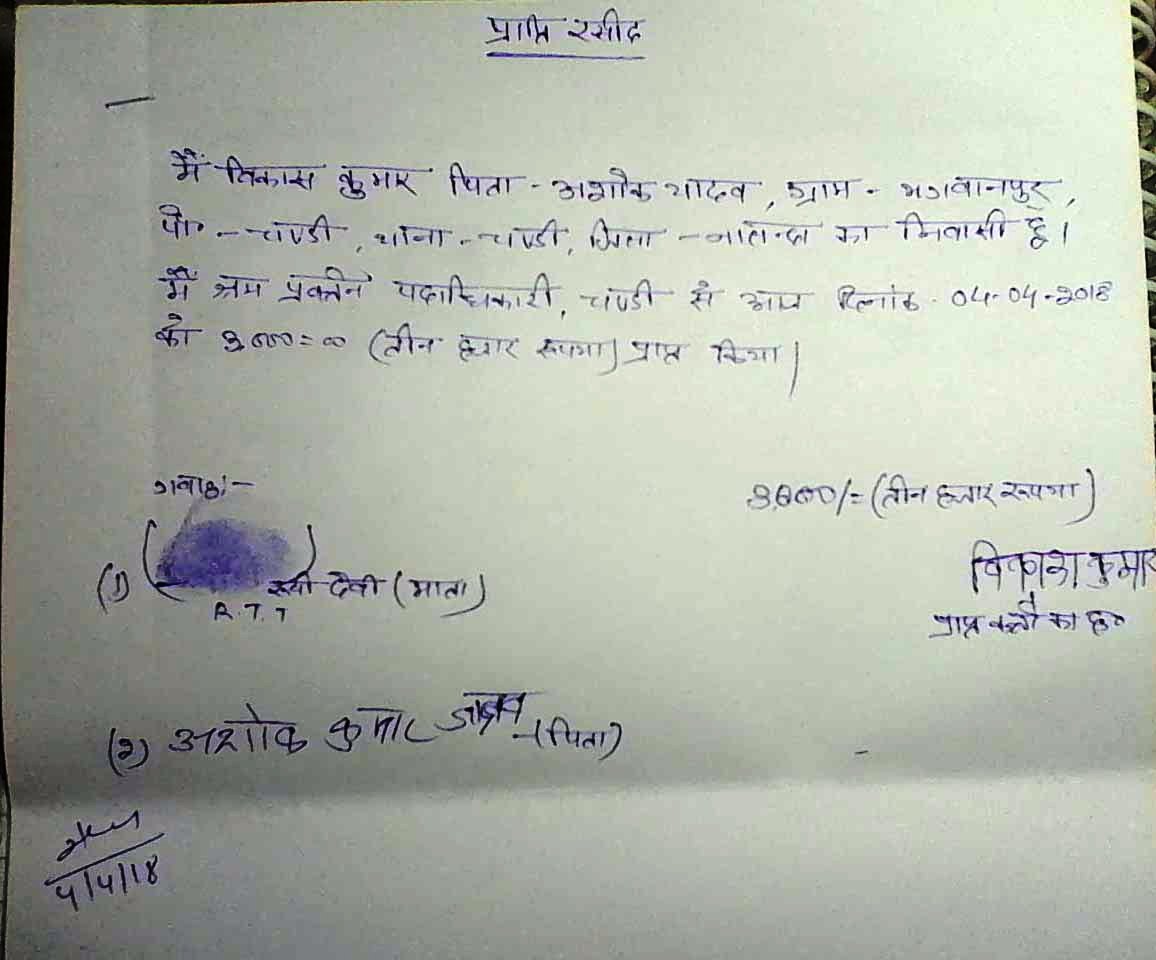 प्राप्ति रसीद
मैं विकास कुमार पिता - अशोक यादव, ग्राम - भगवानपुर,
पो० - चण्डी, थाना - चण्डी, जिला - नालन्दा का निवासी हूँ।
मैं श्रम प्रवर्तन पदाधिकारी, चण्डी से आज दिनांक - 04-04-2018
को 3000=00 (तीन हजार रूपया) प्राप्त किया।
गवाह:-
3,000/= (तीन हजार रूपया)
(1) देवी (माता)
R.T.I
विकाश कुमार
प्राप्त कर्त्ता का ह०
(2) अशोक कुमार - (पिता)
4/4/18